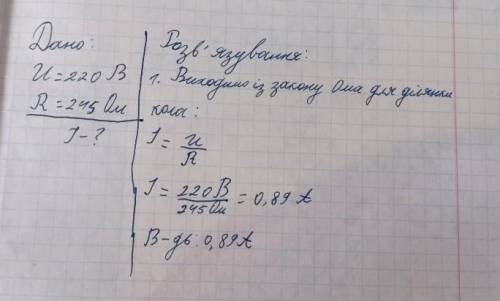 Дано:
U = 220 В
R = 245 Ом
I - ?
Розв'язування:
1. Виходимо із закону Ома для ділянки
кола:
I = U/R
I = 220 В/245 Ом = 0,89 А
В-дь: 0,89 А